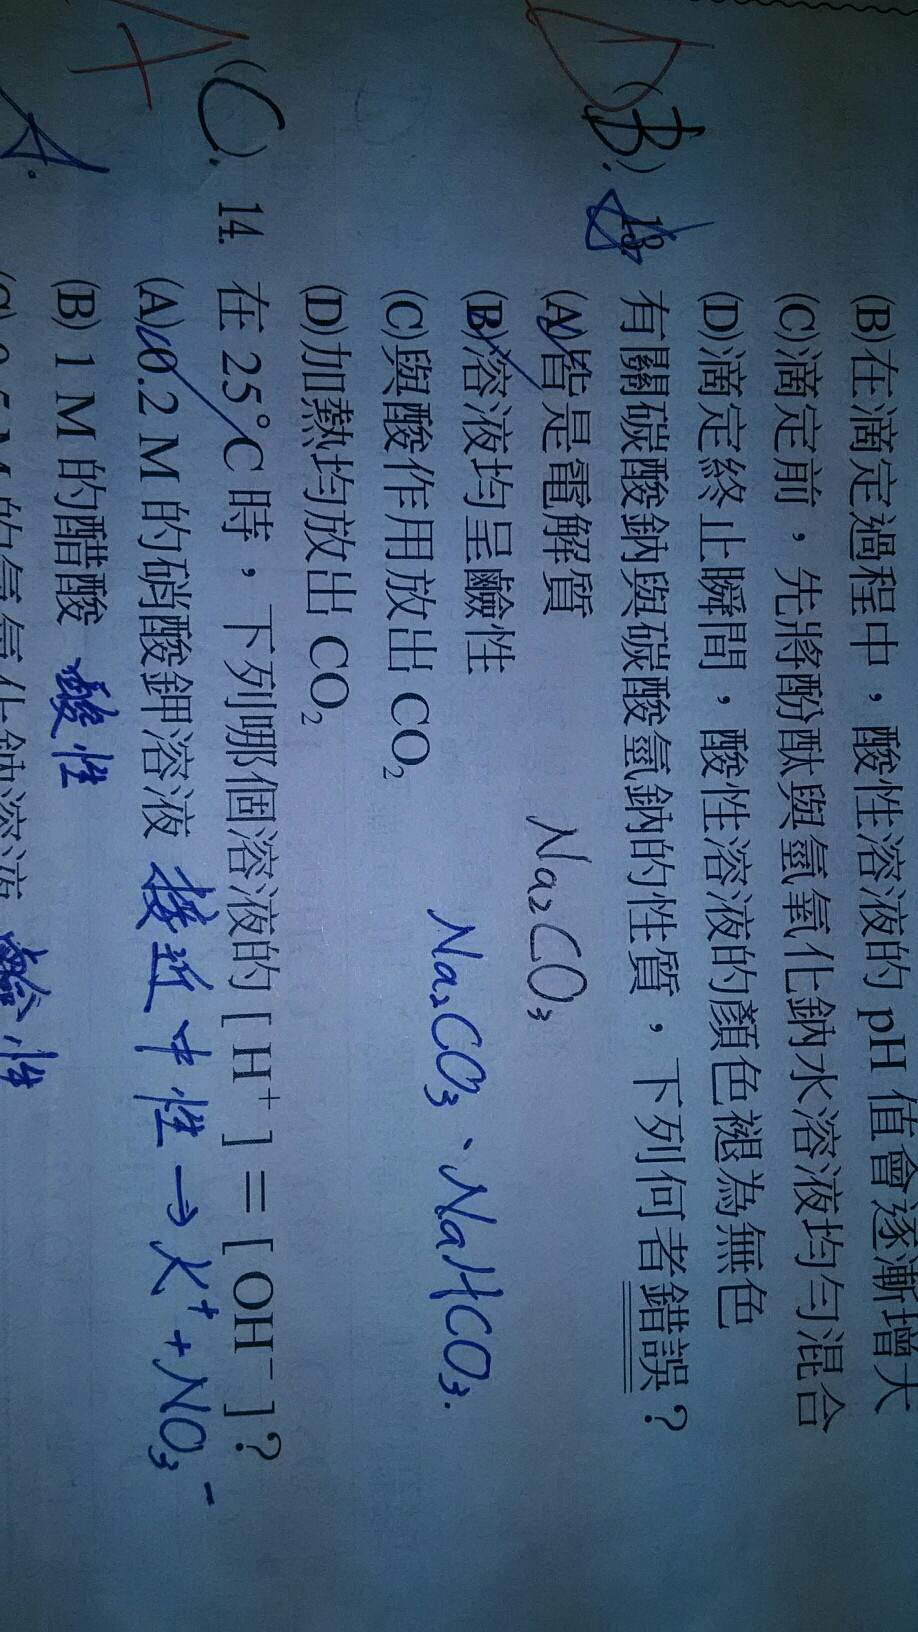 (B)在滴定過程中，酸性溶液的 pH 值會逐漸增大
(C)滴定前，先將酚酞與氫氧化鈉水溶液均勻混合
(D)滴定終止瞬間，酸性溶液的顏色褪為無色
(B). 13. 有關碳酸鈉與碳酸氫鈉的性質，下列何者錯誤？
(A)皆是電解質 Na₂CO₃
(B)溶液均呈鹼性 Na₂CO₃、NaHCO₃.
(C)與酸作用放出 CO₂
(D)加熱均放出 CO₂
(C). 14. 在 25°C 時，下列哪個溶液的 [H⁺] = [OH⁻]？
(A) 0.2 M 的硝酸鉀溶液 接近中性 → K⁺ + NO₃⁻
(B) 1 M 的醋酸 酸性
A.
鹼性